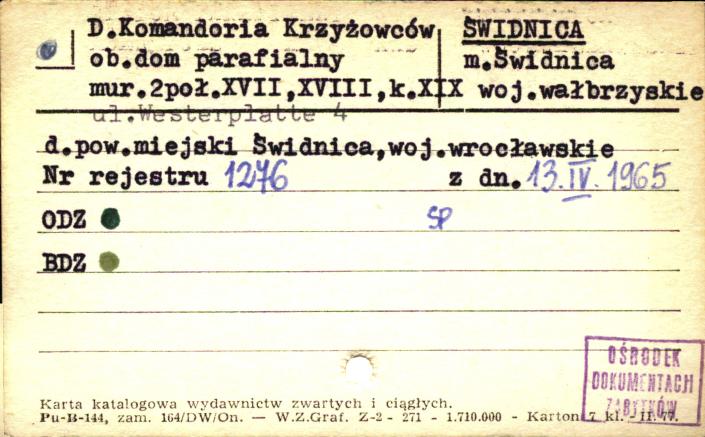 D.Komandoria Krzyżowców ŚWIDNICA
ob.dom parafialny m.Świdnica
mur.2poł.XVII,XVIII,k.XIX woj.wałbrzyskie
ul.Westerplatte 4
d.pow.miejski Świdnica,woj.wrocławskie
Nr rejestru 1276 z dn. 13.IV.1965
ODZ SP
BDZ
OŚRODEK
DOKUMENTACJI
ZABYTKÓW
Karta katalogowa wydawnictw zwartych i ciągłych.
Pu-B-144, zam. 164/DW/On. — W.Z.Graf. Z-2 - 271 - 1.710.000 - Karton 7 kl.